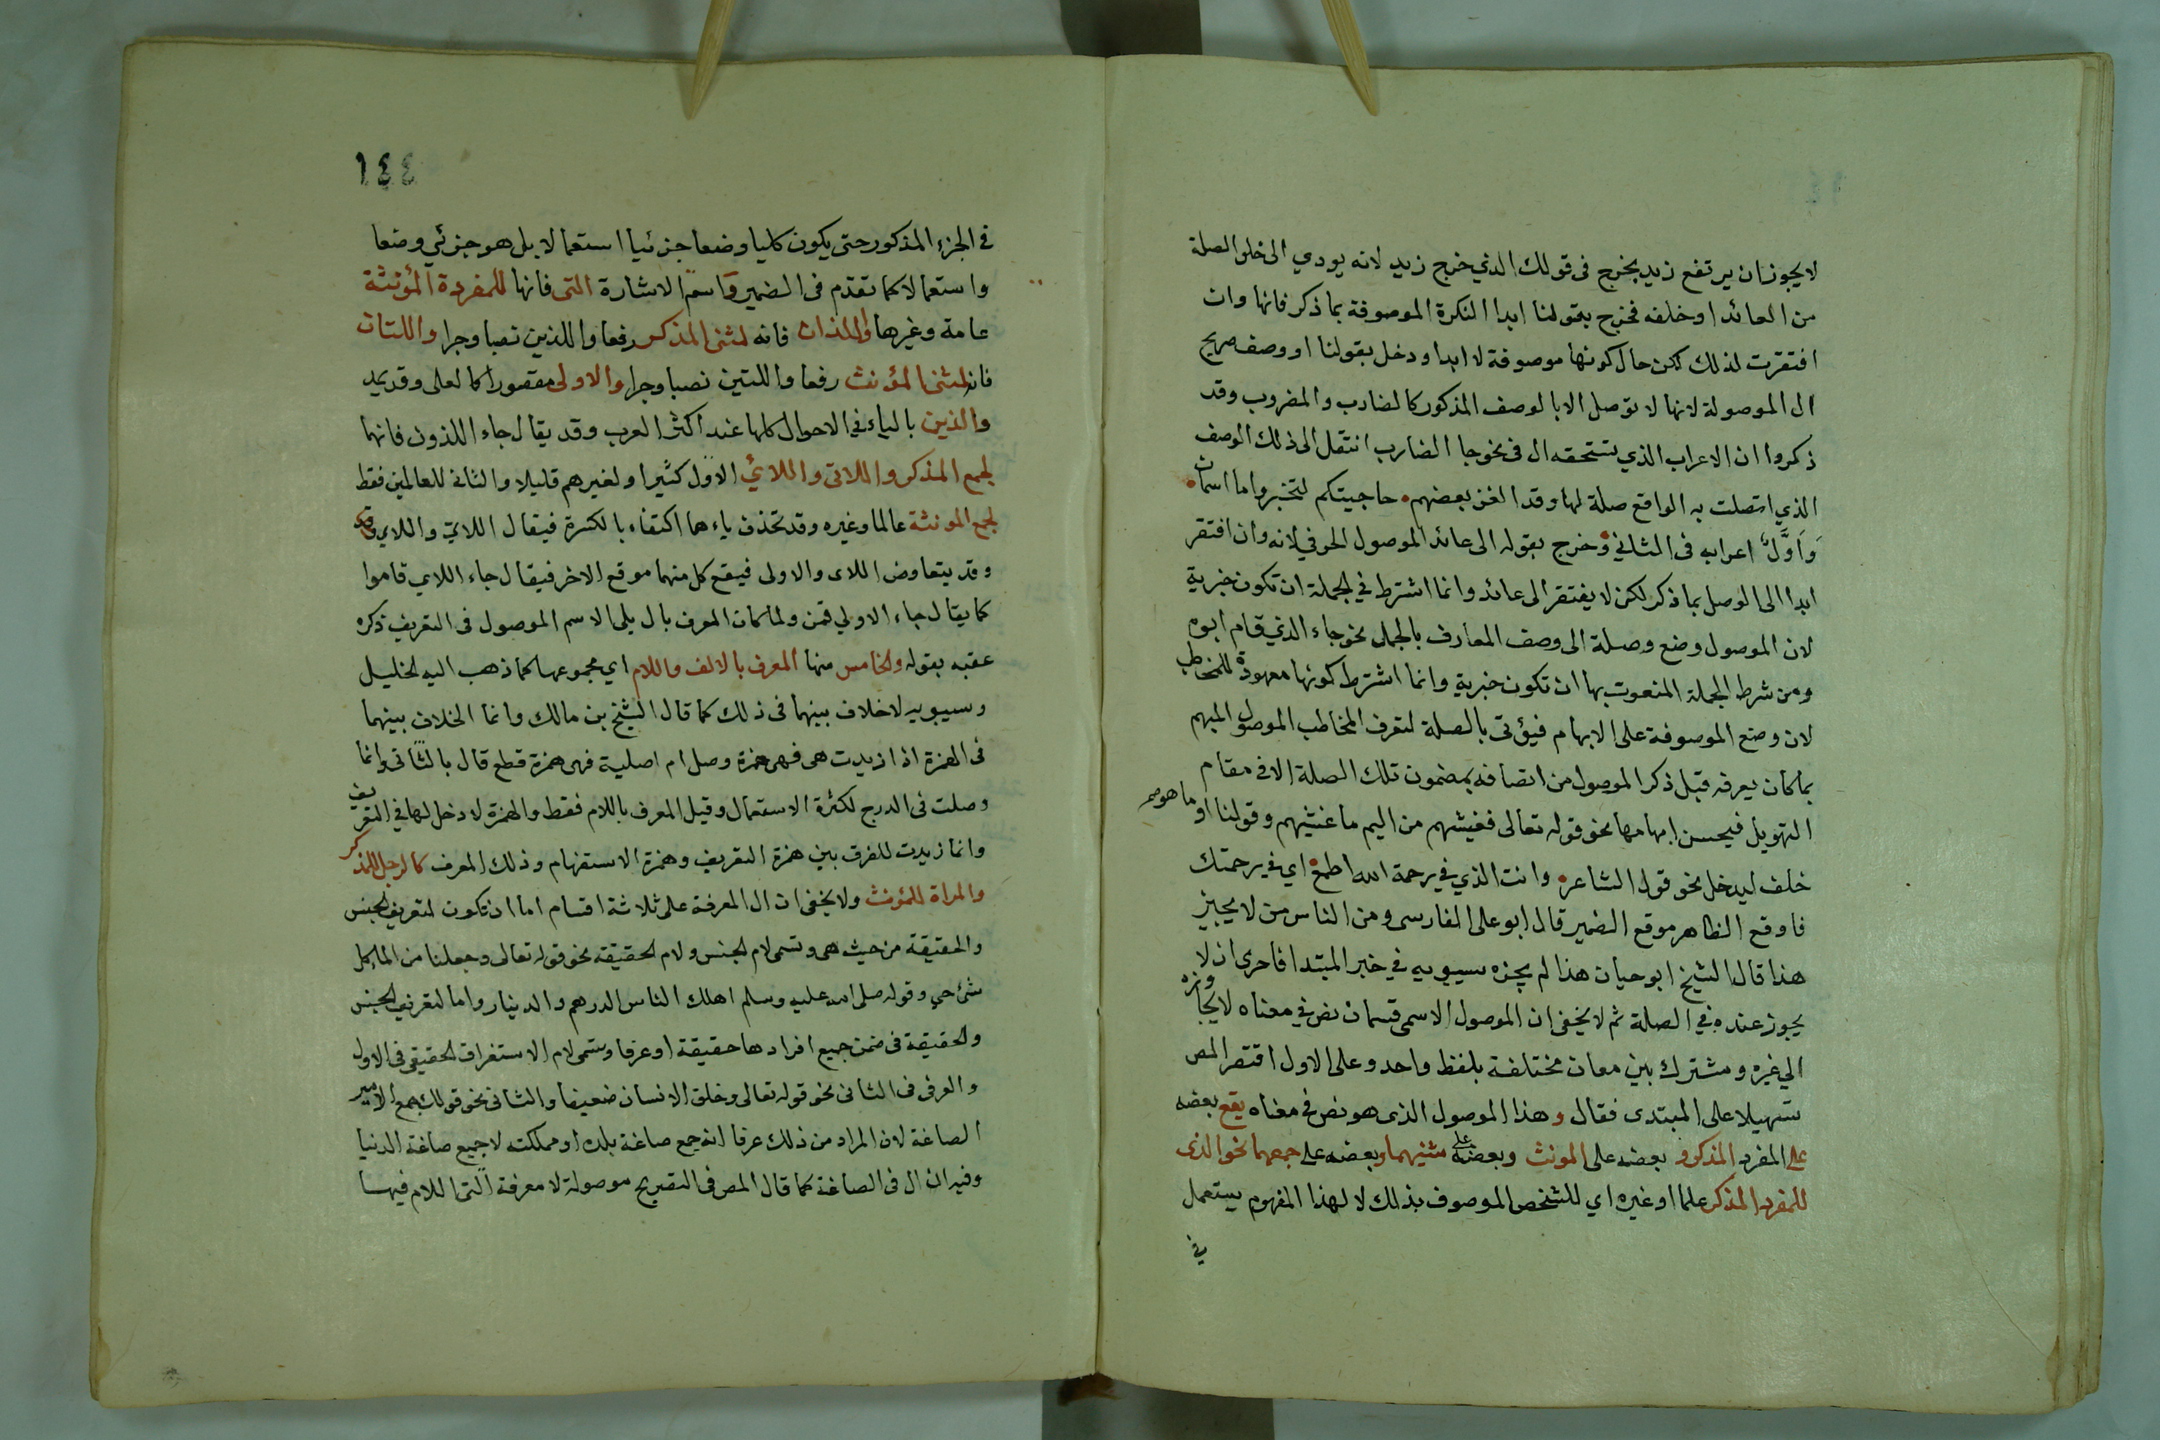 لا يجوز ان يرتفع زيد بخرج فى قولك الذي خرج زيد لانه يودي الى خلو الصلة
من العائد او خلفه فخرج بقولنا ابدا النكرة الموصوفة بما ذكر فانها وان
افتقرت لذلك لكن حال كونها موصوفة لا ابدا ودخل بقولنا او وصف صريح
ال الموصولة لانها لا توصل الا بالوصف المذكور كالضارب والمضروب وقد
ذكروا ان الاعراب الذي يستحقه ال فى نحو جا الضارب انتقل الى ذلك الوصف
الذي اتصلت به الواقع صلة لها وقد الغز بعضهم حاجيتكم لتخبروا ما اسمان
وَاَوَّلٌ اعرابه فى الثاني وخرج بقوله الى عائد الموصول الحرفي لانه وان افتقر
ابدا الى الوصل بما ذكر لكن لا يفتقر الى عائد وانما اشترط في الجملة ان تكون خبرية
لان الموصول وضع وصلة الى وصف المعارف بالجمل نحو جاء الذي قام ابوه
ومن شرط الجملة المنعوت بها ان تكون خبرية وانما اشترط كونها معهودة للمخاطب
لان وضع الموصوفة على الابهام فيؤتى بالصلة لتعرف المخاطب الموصول المبهم
بما كان يعرفه قبل ذكر الموصول من اتصافه بمضمون تلك الصلة الا في مقام
التهويل فيحسن ابهامها نحو قوله تعالى فغشيهم من اليم ما غشيهم وقولنا او ما هو صح
خلف ليدخل نحو قول الشاعر وانت الذي في رحمة الله اطمع اي في رحمتك
فاوقع الظاهر موقع الضمير قال ابو على الفارسى ومن الناس من لا يجيز
هذا قال الشيخ ابو حيان هذا لم يجزه سيبويه في خبر المبتدا فاحرى ان لا
يجوز عنده في الصلة ثم لا يخفى ان الموصول الاسمى قسمان نص في معناه لا يجاوزه
الى غيره ومشترك بين معان مختلفة بلفظ واحد وعلى الاول اقتصر المص
تسهيلا على المبتدى فقال وهذا الموصول الذى هو نص في معناه يقع بعضه
على المفرد المذكر و بعضه على المونث وبعضه على مثنيهما وبعضه على جمعهما نحو الذى
للمفرد المذكر علما او غيره اي للشخص الموصوف بذلك لا لهذا المفهوم يستعمل
في
١٤٤
في الجزء المذكور حتى يكون كليا وضعا جزئيا استعمالا بل هو جزئي وضعا
واستعمالا كما تقدم فى الضمير واسم الاشارة التى فانها للمفردة المؤنثة
عامة وغيرها واللذان فانه لمثنى المذكر رفعا واللذين نصبا وجرا واللتان
فانه لمثنى المؤنث رفعا واللتين نصبا وجرا والاولى مقصورا كالعلى وقد يمد
والذين بالياء في الاحوال كلها عند اكثر العرب وقد يقال جاء اللذون فانهما
لجمع المذكر واللاتى واللائي الاول كثيرا ولغيرهم قليلا والثانى للعالمين فقط
لجمع المونثة عالما وغيره وقد تحذف ياءهما اكتفاء بالكسرة فيقال اللات واللاي
وقد يتعاوض اللاى والاولى فيقع كل منهما موقع الاخر فيقال جاء اللاي قاموا
كما يقال جاء الاولي قمن ولما كان المعرف بال يلى الاسم الموصول فى التعريف ذكره
عقبه بقوله والخامس منها المعرف بالالف واللام اي مجموعها كما ذهب اليه الخليل
وسيبويه لا خلاف بينهما فى ذلك كما قال الشيخ بن مالك وانما الخلاف بينهما
فى الهمزة اذا زيدت هى فهى همزة وصل ام اصلية فهى همزة قطع قال بالثانى وانما
وصلت فى الدرج لكثرة الاستعمال وقيل المعرف باللام فقط والهمزة لا دخل لها في التعريف
وانما زيدت للفرق بين همزة التعريف وهمزة الاستفهام وذلك المعرف كالرجل للمذكر
والمراة للمؤنث ولا يخفى ان ال المعرفة على ثلاثة اقسام اما ان تكون لتعريف الجنس
والحقيقة من حيث هى وتسمى لام الجنس ولام الحقيقة نحو قوله تعالى وجعلنا من الما كل
شئ حي وقوله صلى الله عليه وسلم اهلك الناس الدرهم والدينار واما لتعريف الجنس
والحقيقة فى ضمن جميع افرادها حقيقة او عرفا وتسمى لام الاستغراق الحقيقي فى الاول
والعرفى فى الثانى نحو قوله تعالى وخلق الانسان ضعيفا والثانى نحو قولك جمع الامير
الصاغة لان المراد من ذلك عرفا انه جمع صاغة بلده او مملكته لا جميع صاغة الدنيا
وفيه ان ال فى الصاغة كما قال المص فى التصريح موصولة لا معرفة التى اللام فيها